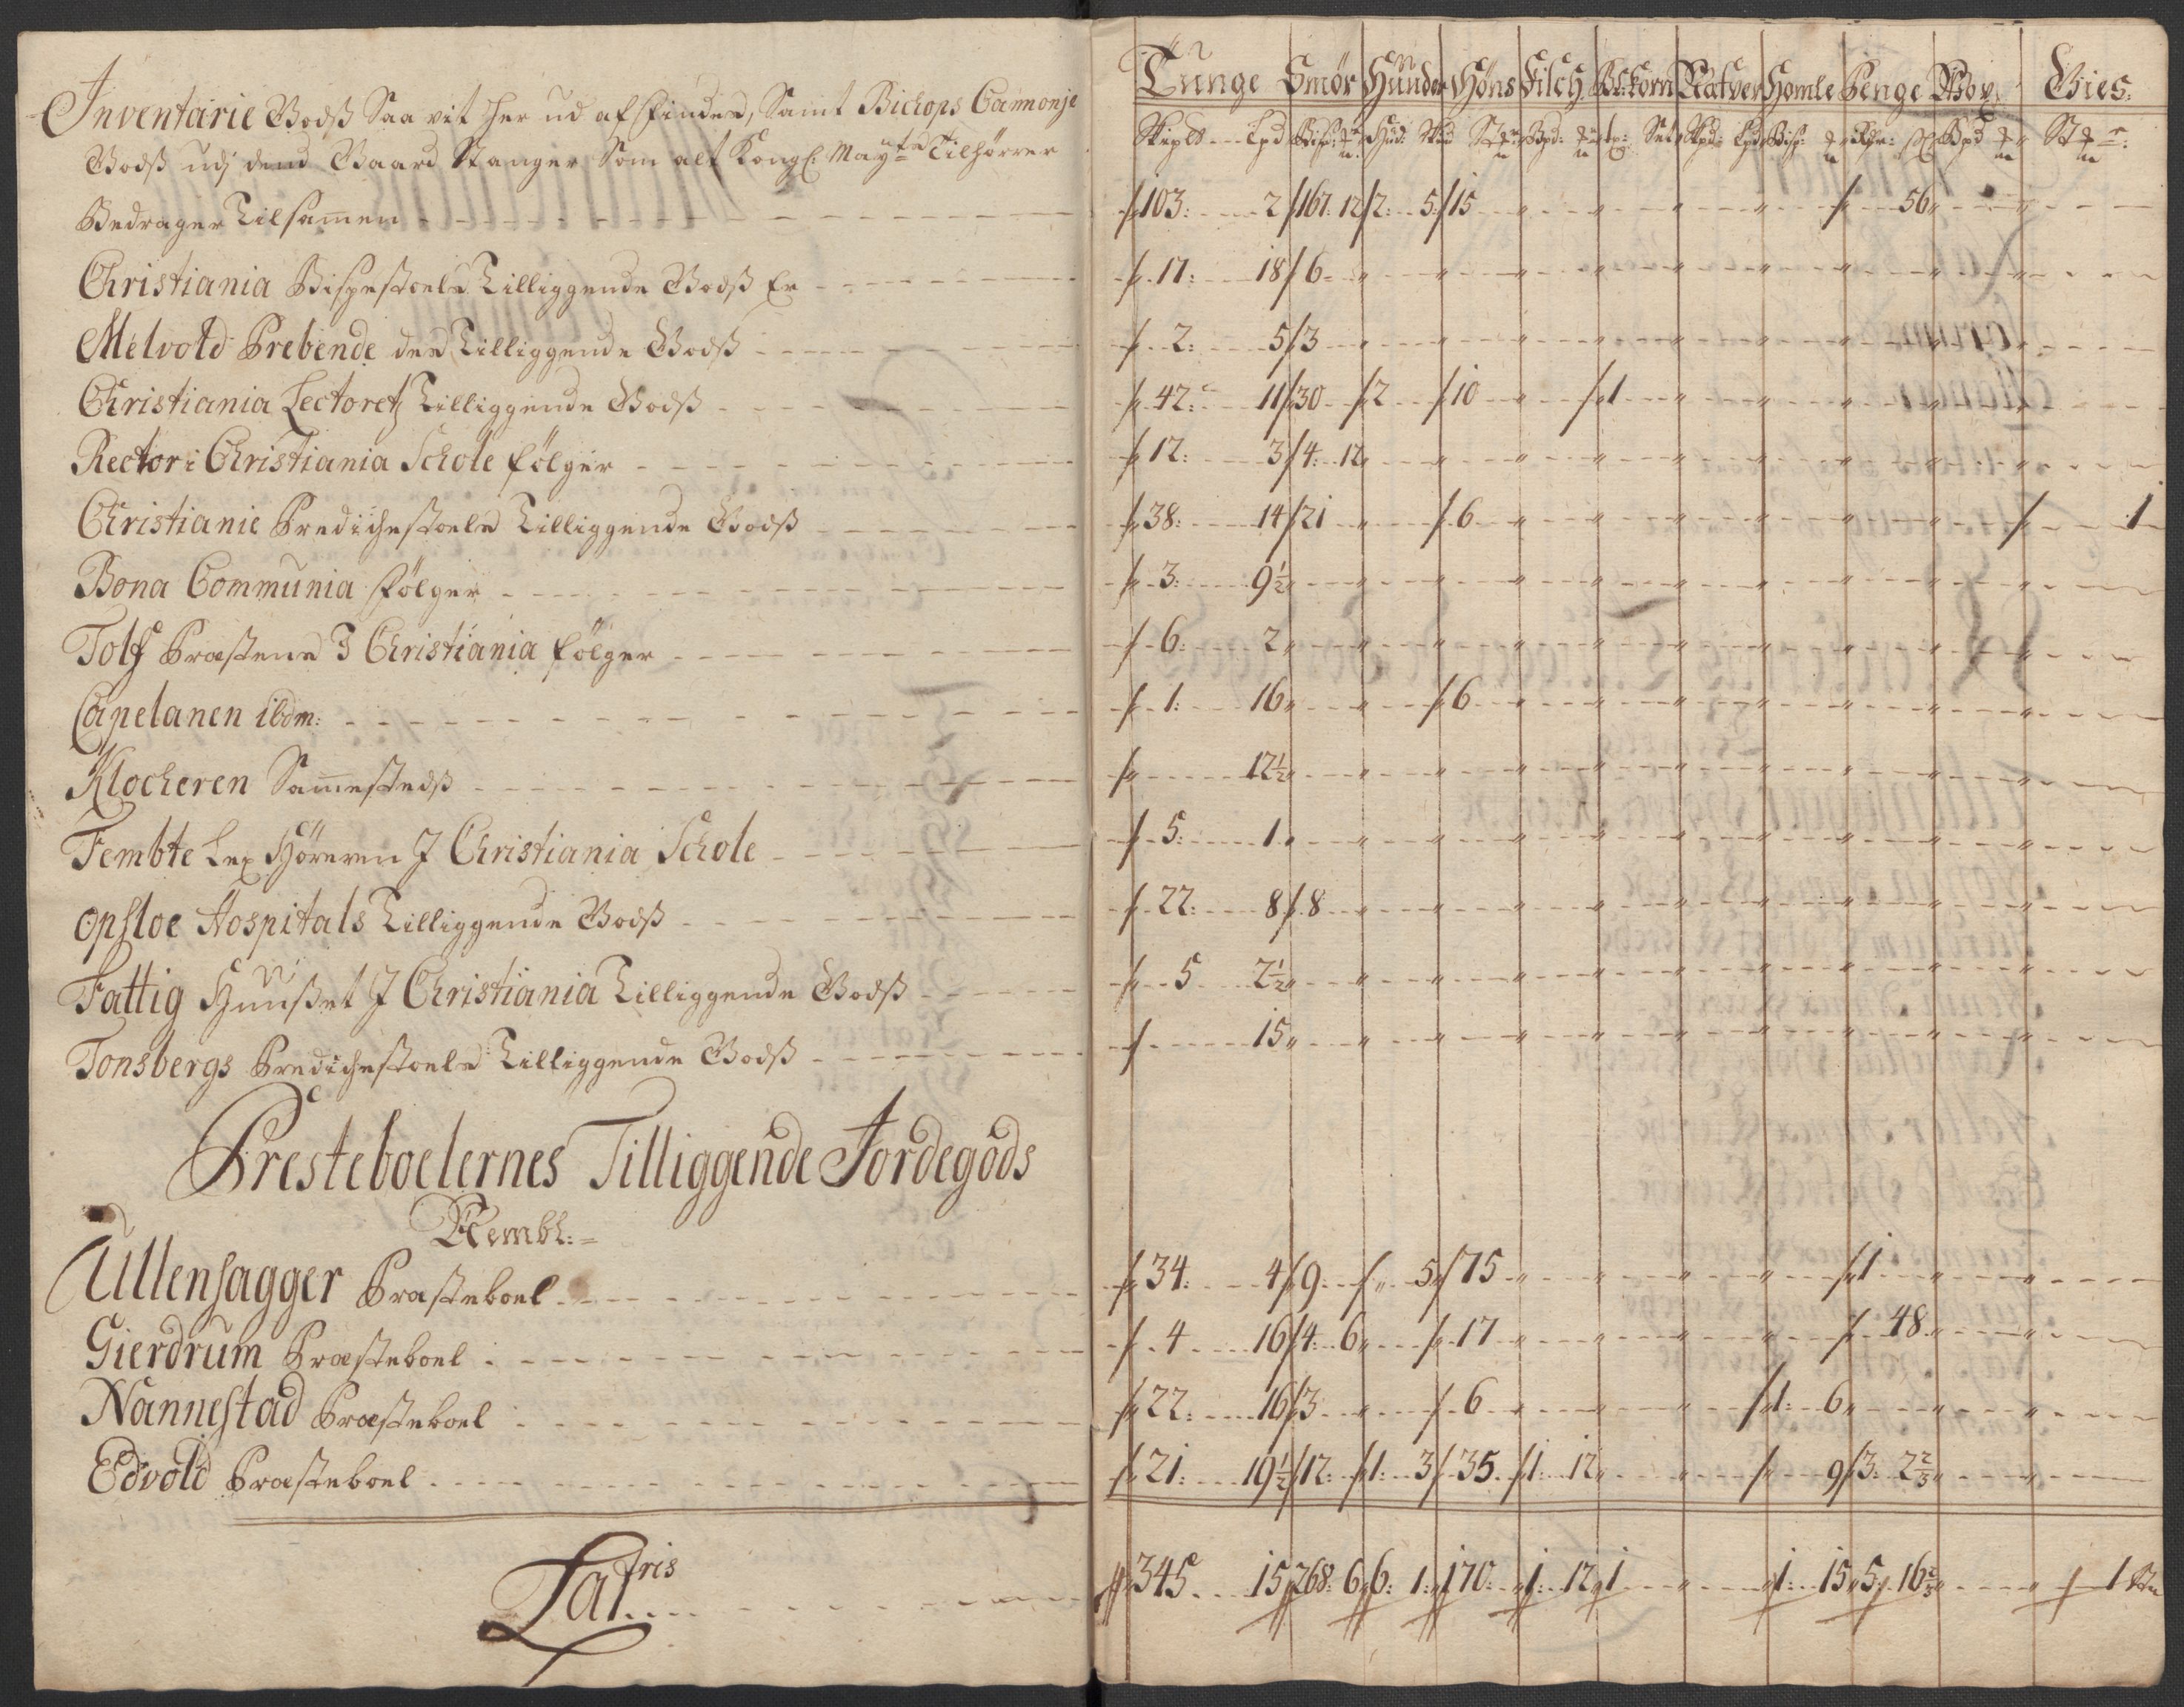 Inventarie Godß Saa vit her ud af findes, Samt Bichops Cannonje
Godß udj dend Gaard Stanger Som alt Kongl: Maytz Tilhørrer
Bedrager Tilsamen
Christiania Bispestoels Tilliggende Godß Er
Melvold Prebende des Tilliggende Godß
Christiania Lectoretz Tilliggende Godß
Rector i Christiania Schole følger
Christianie Predichestoels Tilliggende Godß
Bona Communia følger
Tolf Præstene I Christiania følger
Capelanen ibdm:
Klocheren Sammestedß
Fembte Lex Høreren I Christiania Schole
Opsloe Hospitals Tilliggende Godß
Fattig Huußet I Christiania Tilliggende Godß
Tonsbergs Predichestoels Tilliggende Godß
Presteboelernes Tilliggende Jordegods
Nembl:
Ullensagger Præsteboel
Gierdrum Præsteboel
Nannestad Præsteboel
Edvold Præsteboel
Latris
Tunge Smør Hunder Høns Bl:korn Homle Penge
103: 2 167 12 2: 5 15 56
17: 18 6
2: 5 3
42: 11 30 2 10 1
12: 3 4: 12
38: 14 21 6 1
3: 9½
6: 2
1: 16 6
12½
5: 1
22: 8 8
5 2½
15
34: 4 9 5 75 1
4 16 4: 6 17 48
22: 16 3 6 1: 6
21: 19½ 12: 1: 3 35 1: 12 9 3: 2⅔
345 15 268: 6 6: 1: 170: 1: 12 1 1: 15 5 16⅔ 1